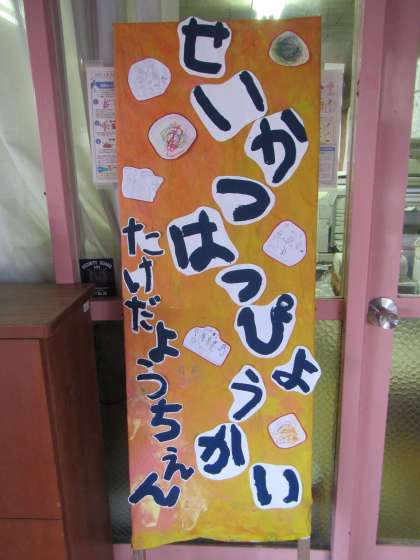 せいかつはっぴょうかい
たけだようちえん